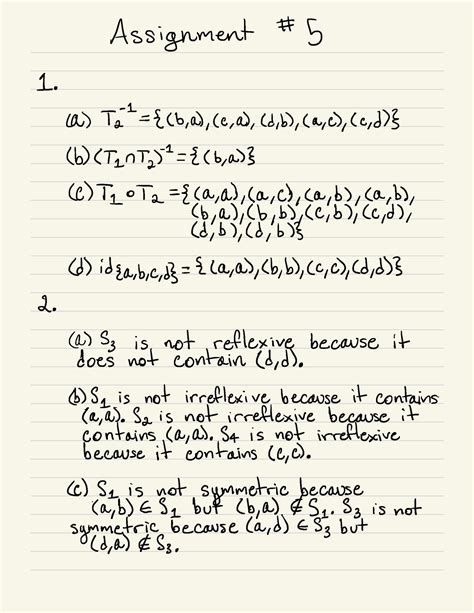 Assignment # 5
1.
(a) T₂⁻¹ = {(b,a),(c,a),(d,b),(a,c),(c,d)}
(b) (T₁∩T₂)⁻¹ = {(b,a)}
(c) T₁ ∘ T₂ = {(a,a),(a,c),(a,b),(a,b),
(b,a),(b,b),(c,b),(c,d),
(d,b),(d,b)}
(d) id{a,b,c,d} = {(a,a),(b,b),(c,c),(d,d)}
2.
(a) S₃ is not reflexive because it
does not contain (d,d).
(b) S₁ is not irreflexive because it contains
(a,a). S₂ is not irreflexive because it
contains (a,a). S₄ is not irreflexive
because it contains (c,c).
(c) S₁ is not symmetric because
(a,b) ∈ S₁ but (b,a) ∉ S₁. S₃ is not
symmetric because (a,d) ∈ S₃ but
(d,a) ∉ S₃.